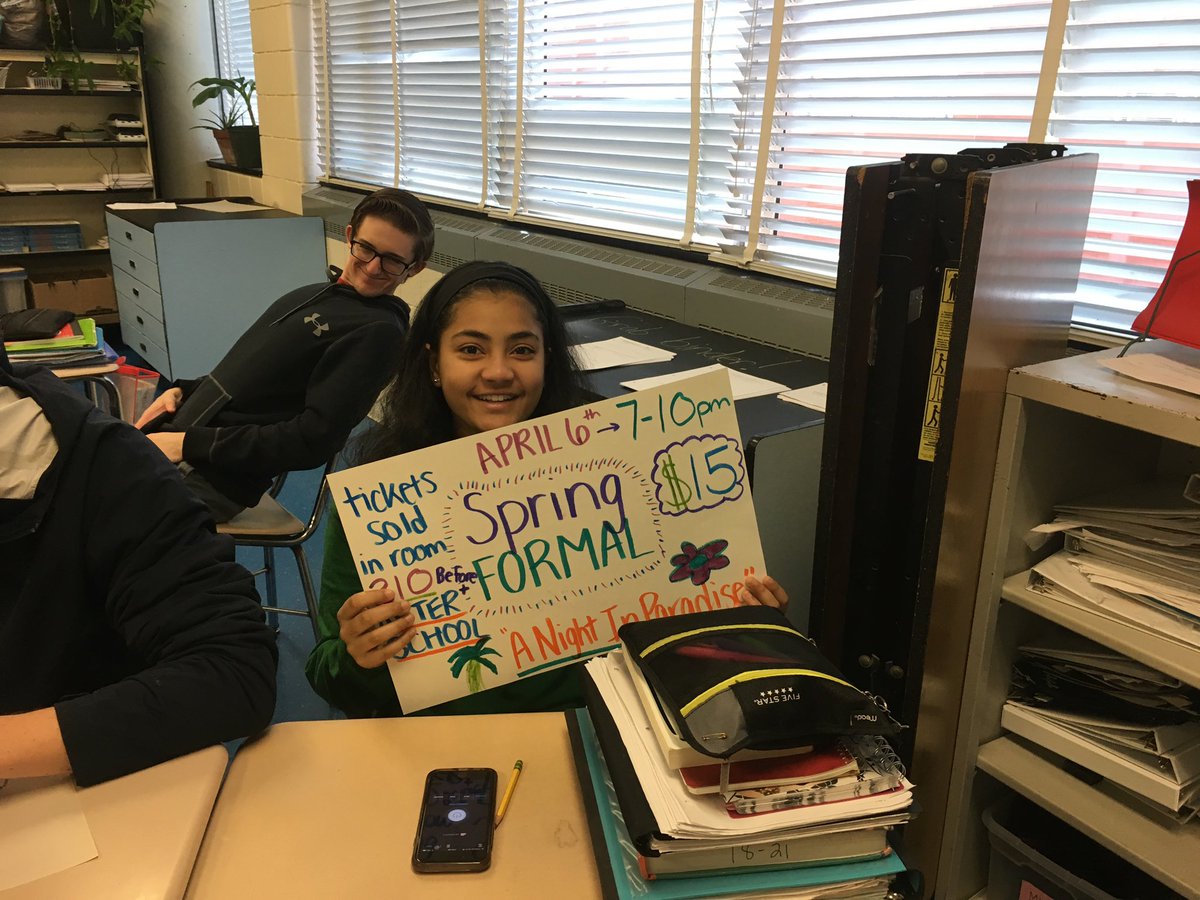 APRIL 6th → 7-10pm
$15
tickets
sold
in room
310 Before
+
AFTER
SCHOOL
Spring
FORMAL
"A Night In Paradise"
FIVE STAR
Mead
18-21